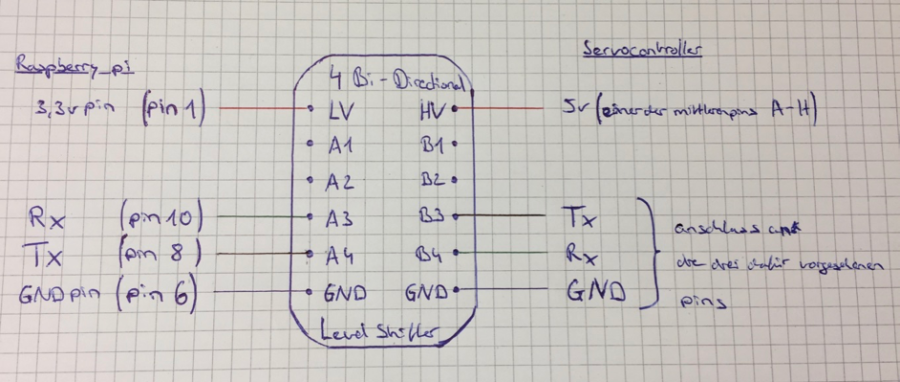 Raspberry_pi
Servocontroller
4 Bi-Directional
3,3v pin (pin 1) LV HV 5v (einer der mittleren pins A-H)
A1 B1
A2 B2
Rx (pin 10) A3 B3 Tx
Tx (pin 8) A4 B4 Rx
GND pin (pin 6) GND GND GND
anschluss an
die drei dafür vorgesehenen
pins
Level Shifter